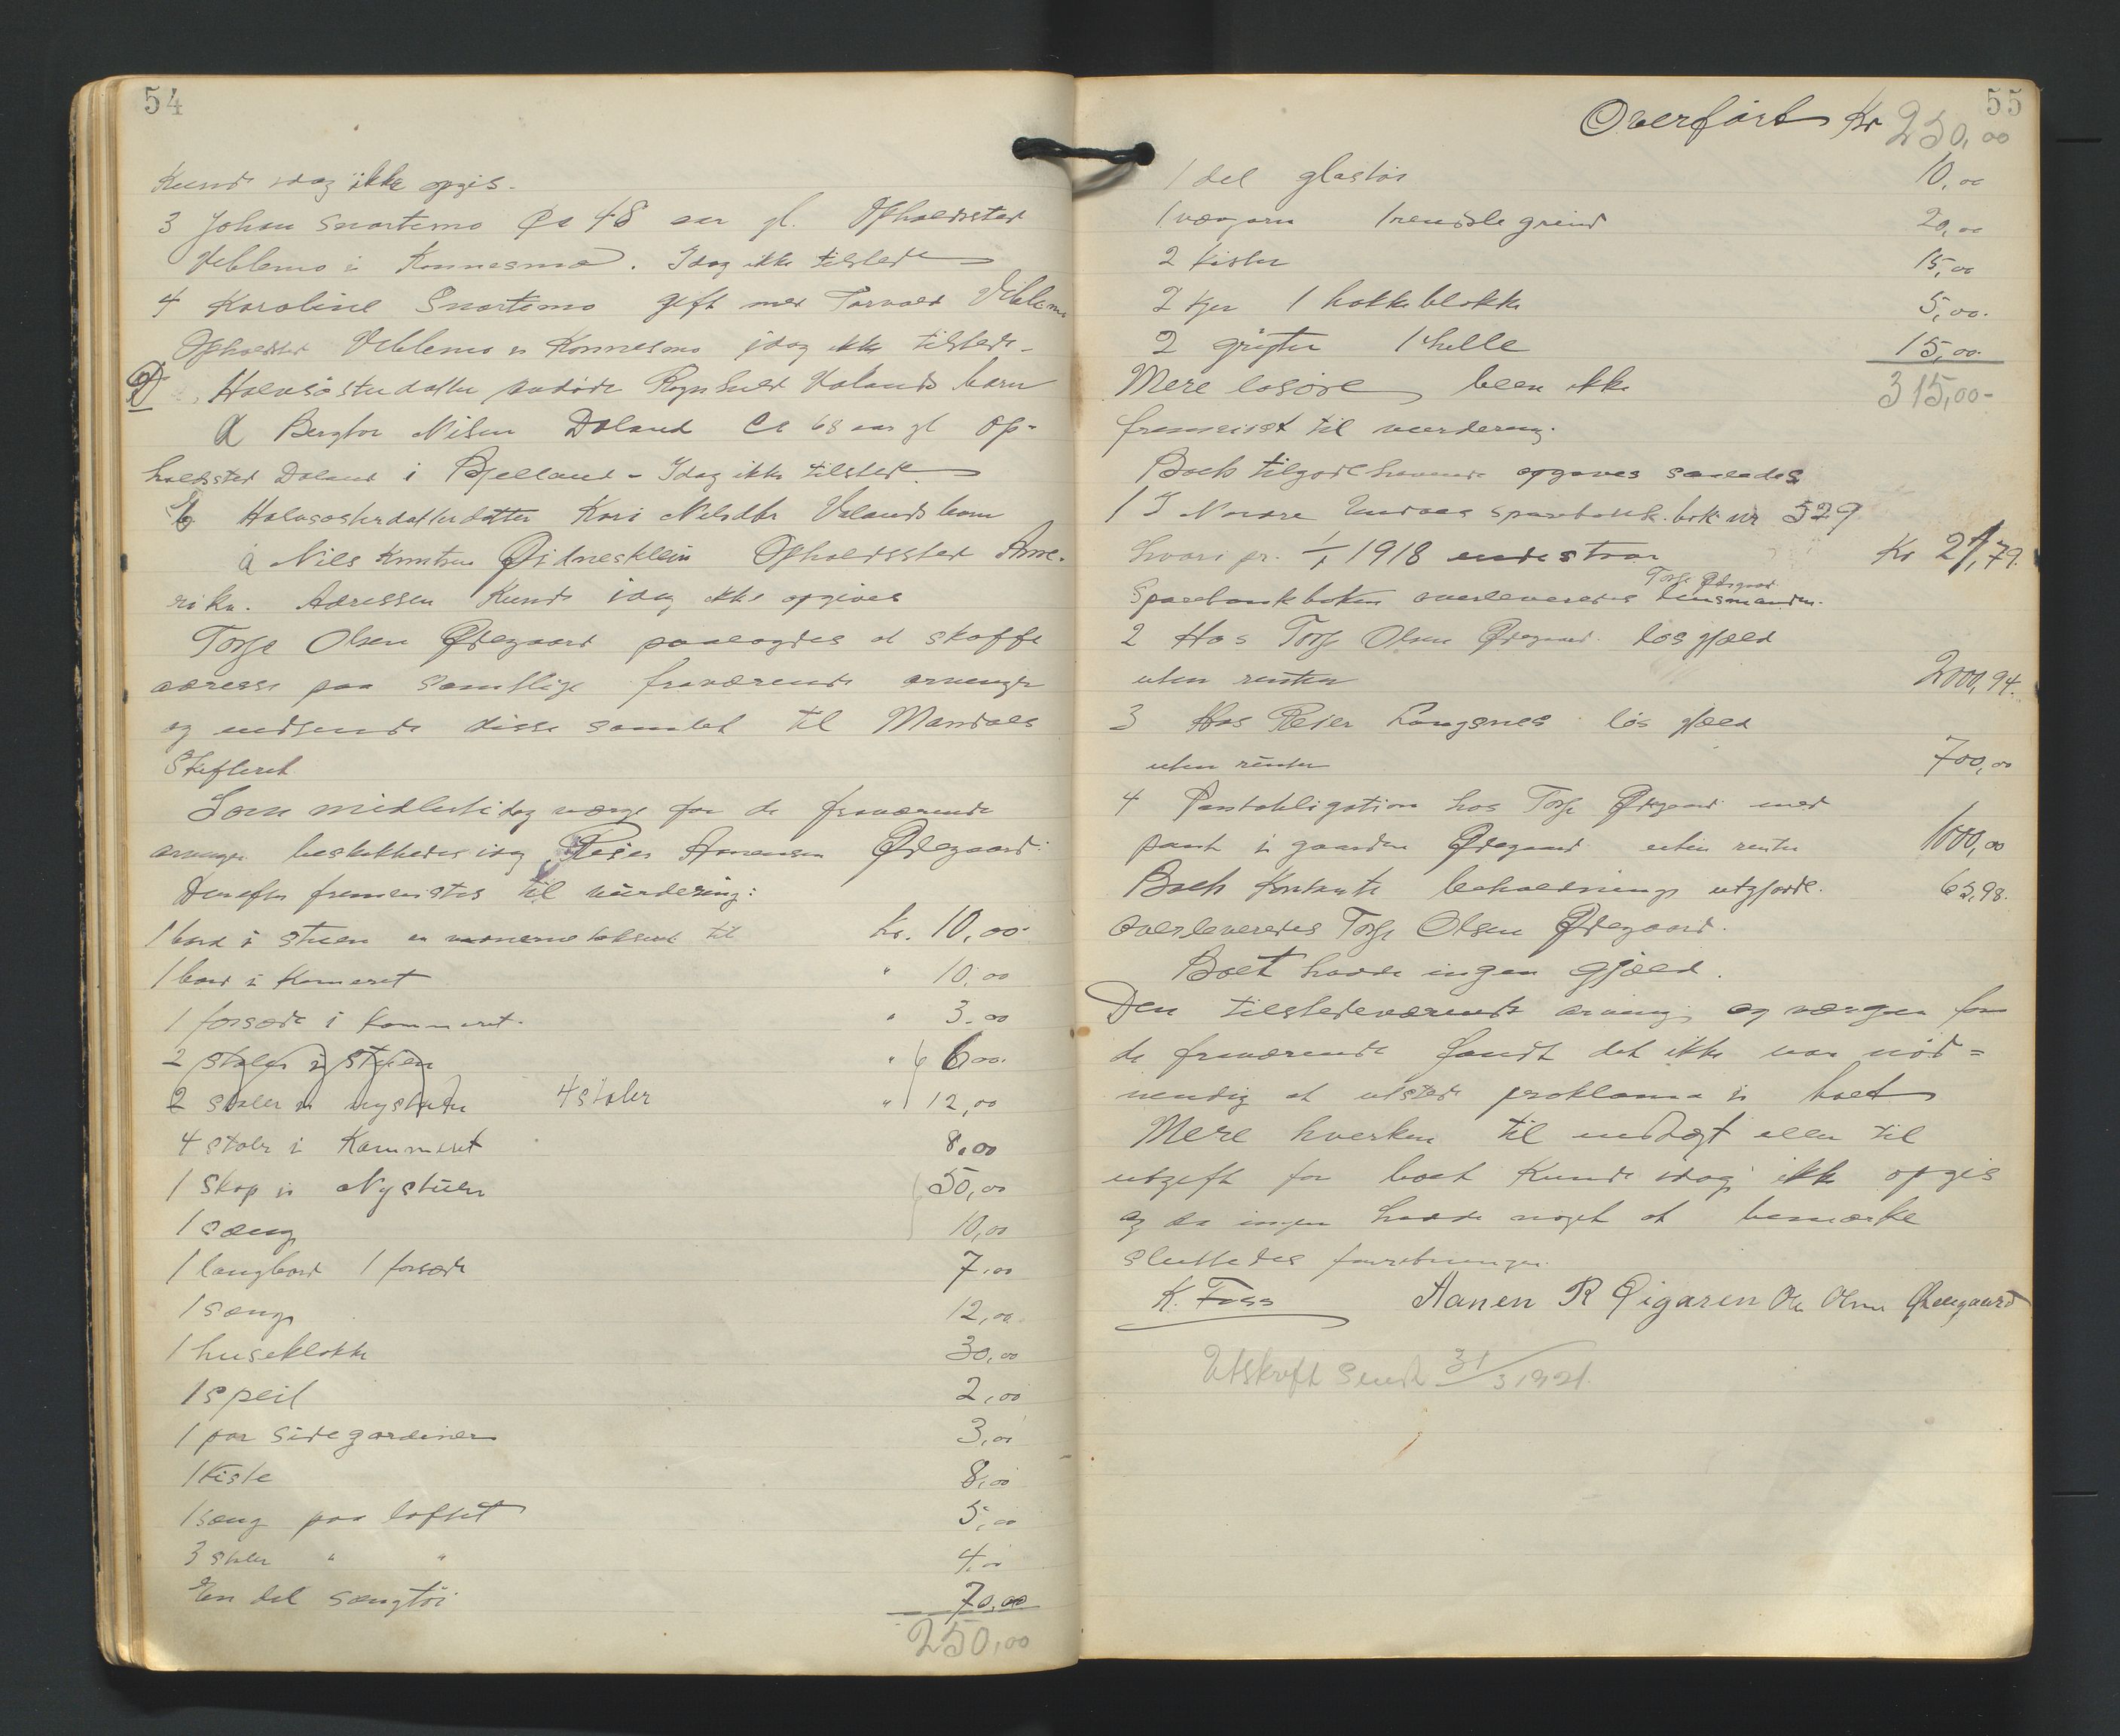 54
Kunde idag ikke opgis.
3 Johan Snartemo Ca 48 aar gl. Opholdssted
Veblemo i Konnesmo. Idag ikke tilstede
4 Karoline Snartemo gift med Torvald Veblemo
Opholdssted Veblemo i Konnesmo idag ikke tilstede.
D Halvsøsterdatter avdøde Ragnhild Valands barn
a Bergtor Nilsen Doland Ca 68 aar gl Op-
holdssted Doland i Bjelland - Idag ikke tilstede.
b Halvsøsterdatterdatter Kari Nilsdtr Valands barn
a Nils Knutsen Øidnesklein Opholdssted Ame-
rika. Adressen kunde idag ikke opgives
Torje Olsen Ødegaard paalagdes at skaffe
adresse paa samtlige fraværende arvinger
og indsende disse samlet til Mandals
Skifteret
Som midlertidig værge for de fraværende
arvinger beskikkedes idag Reier Aanensen Ødegaard.
Derefter fremvistes til vurdering:
1 bord i stuen er taksert til kr. 10,00
1 bord i Kammeret " 10,00
1 forsæde i kammeret. " 3,00
2 stoler i stuen " 6,00
2 stoler i nystuen 4 stoler " 12,00
4 stoler i Kammeret 8,00
1 Skap i Nystuen 50,00
1 sæng 10,00
1 langbord 1 forsæde 7,00
1 sæng 12,00
1 huseklokke 30,00
1 speil 2,00
1 par sidegardiner 3,00
1 kiste 8,00
1 sæng paa loftet 5,00
3 stoler " " 4,00
En del sængtøi 70,00
250,00
55
Overført Kr 250,00
1 del glastøi 10,00
1 1 rendslegreind 20,00
2 kister 15,00
2 kjer 1 hakkeblokke 5,00
2 gryter 1 helle 15,00
Mere løsøre blev ikke 315,00
fremvist til vurdering.
Boets tilgodehavende opgaves saaledes
1 I Nordre Undals sparebank bok nr 529
hvori pr. 1/1 1918 indestaar Kr 21,79
Torje Ødegaard
Sparebankboken overleveredes lensmanden.
2 Hos Torje Olsen Ødegaard løs gjæld
uten renter 2000,94
3 Hos Reier Langsnes løs gjæld
uten renter 700,00
4 Pantobligation hos Torje Ødegaard med
pant i gaarden Ødegaard uten renter 1000,00
Boets kontante beholdning utgjorde 65,98
overleveredes Torje Olsen Ødegaard.
Boet havde ingen gjæld.
Den tilstedeværende arving og værgen for
de fraværende fandt det ikke var nød=
vendig at utstede proklama i boet
Mere hverken til indtægt eller til
utgift for boet kunde idag ikke opgis
og da ingen havde noget at bemærke
sluttedes forretningen.
K. Foss Aanen R Øigaren Ole Olsen Ødegaard
Utskrift sendt 31/3 1921.